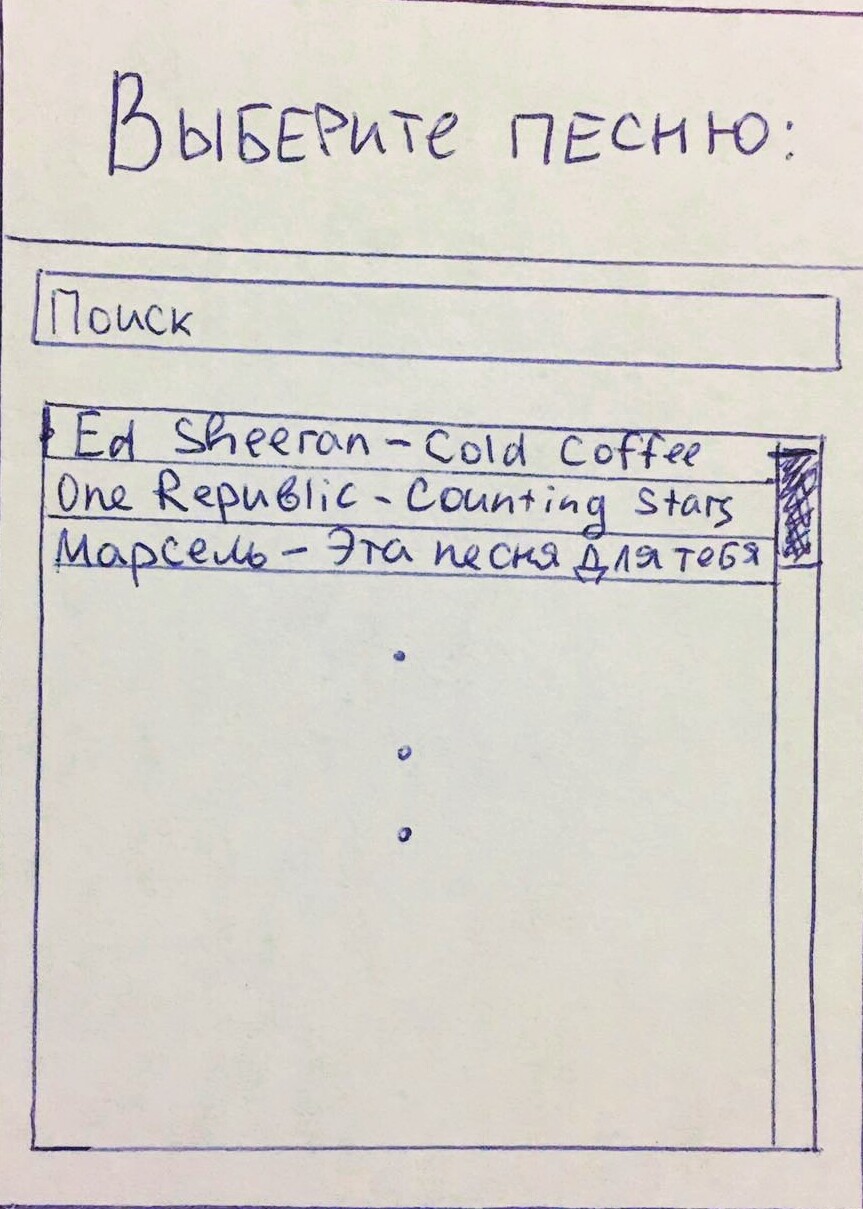 Выберите песню:
Поиск
Ed Sheeran - Cold Coffee
One Republic - Counting Stars
Марсель - Эта песня для тебя